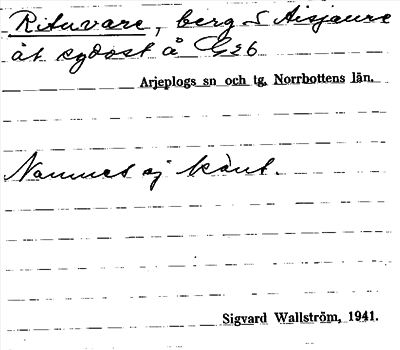 Rituvare, berg S Aisjaure
åt sydost å G26
Arjeplogs sn och tg, Norrbottens län.
Namnet ej känt.
Sigvard Wallström, 1941.